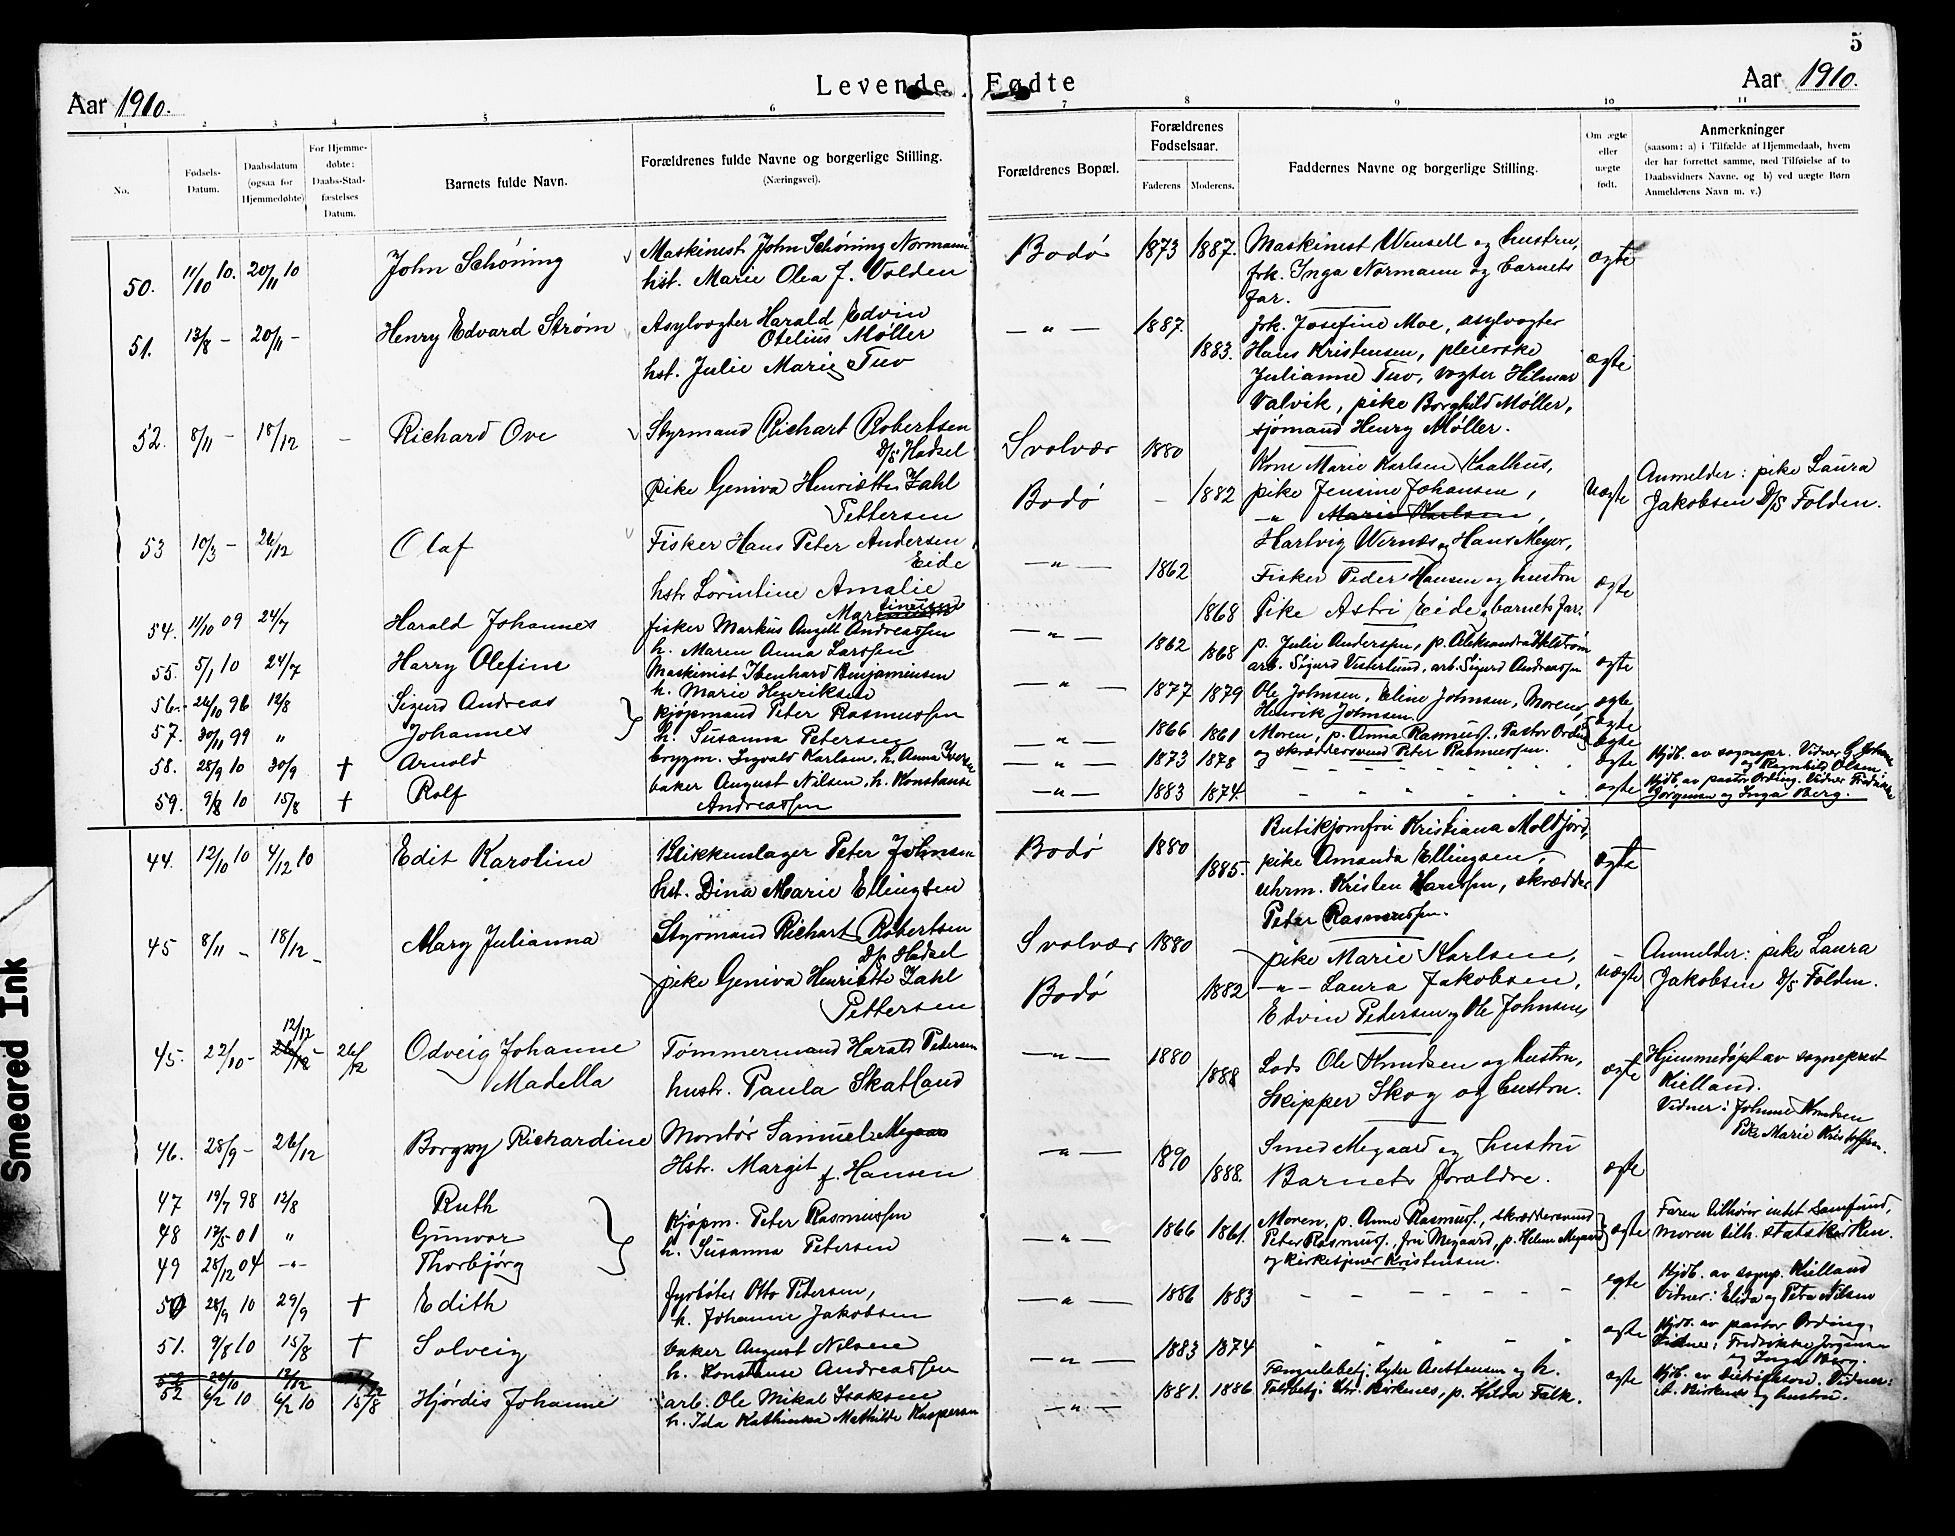 5
Levende Fødte
Aar 1910.
Aar 1910.
1 2 3 4 5 6 7 8 9 10 11
No.
Fødsels-Datum.
Daabsdatum (ogsaa for Hjemmedøbte)
For Hjemmedøbte: Daabs-Stadfæstelses Datum.
Barnets fulde Navn.
Forældrenes fulde Navne og borgerlige Stilling.
(Næringsvei).
Forældrenes Bopæl.
Forældrenes Fødselsaar.
Faderens Moderens.
Faddernes Navne og borgerlige Stilling.
Om ægte eller uægte født.
Anmerkninger
(saasom: a) i Tilfælde af Hjemmedaab, hvem
der har forrettet samme, med Tilføielse af to
Daabsvidners Navne, og b) ved uægte Børn
Anmelderens Navn m. v.)
50. 11/10 10. 20/11 10 John Schöning Maskinist John Schöning Normann Bodø 1873 1887. Maskinist Wensell og hustru, ægte
hst. Marie Olea f. Volden frk. Inga Normann og barnets
far.
51. 13/8 - 20/11 - Henry Edvard Strøm Asylvogter Harald Edvin — " — 1887. frk. Josefine Moe, asylvogter
Otelius Møller 1883. Hans Kristensen, pleierske ægte
hst. Julie Marie Tuv Julianne Tuv, vogter Hilmar
Valvik, pike Borghild Møller,
sjømand Henry Møller.
52. 8/11 - 18/12 - Richard Ove Styrmand Richart Robertsen Svolvær 1880
D/S Hadsel Kone Marie Karlsen Kaalhus, Anmelder: pike Laura
pike Geniva Henriette Zahl Bodø - 1882 pike Jensine Johansen, Uægte Jakobsen D/S Folden.
Pettersen -"- Marie Karlsen,
53 10/3 - 26/12 Olaf Fisker Hans Peter Andersen Hartvig Wirnæs og Hans Meyer,
Eide — " — 1862 Fisker Peder Hansen og hustru ægte
hstr Lorentine Amalie 1868 Pike Astri Eide, barnets far.
54. 11/10 09 24/7 Harald Johannes fisker Markus Angell Andreassen — " — 1862 1868 p. Julie Anderssen, p. Aleksandra Ekstrøm
h. Maren Anna Larssen arb. Sigurd Vesterlund, arb. Sigurd Andreassen ægte
55. 5/1 10 24/7 Harry Olefin Maskinist Ibenhard Benjaminsen — " — 1877 1879 Ole Johnsen, Eline Johnsen, Moren, ægte
h. Marie Henriksen Henrik Johnsen.
56. 26/10 96 12/8 Sigurd Andreas kjøpmand Peter Rasmussen — " — 1866 1861 Moren, p. Anna Rasmuss. Pastor Ording ægte
57. 30/11 99 " Johannes h. Susanna Petersen og skræddersvend Peter Rasmussen. ægte
58. 28/9 10 30/9 † Arnold brygm. Ingvald Karlsen, h. Anna — " — 1873 1878 - - - ægte Hjdb. av sognepr. Vidner G. Johnsen
og Ragnhild Olsen
59. 9/8 10 15/8 † Rolf baker August Nilsen, h. Konstanse — " — 1883 1874. ægte Hjdb av pastor Ording. Vidner Fredrikke
Andreassen Jørgensen og Inga Berg.
44. 12/10 10 4/12 10 Edit Karoline Blikkenslager Peter Johnsen Bodø 1880 Butikjomfru Kristiana Moldjord,
hst. Dina Marie Ellingsen 1885. pike Amanda Ellingsen, ægte
uhrm. Kristen Hanssen, skrædder
Peter Rasmussen.
45 8/11 - 18/12 - Mary Julianna Styrmand Richart Robertsen Svolvær 1880 pike Marie Karlsen, Anmelder: pike Laura
D/S Hadsel
pike Geniva Henriette Zahl Bodø 1882 -"- Laura Jakobsen, uægte Jakobsen D/S Folden.
Pettersen Edvin Pedersen og Ole Johnsen,
12/12
45. 22/10 - 26/12 - 26/12 Odveig Johanne Tømmermand Harald Pedersen — " — 1880 Lods Ole Knudsen og hustru, Hjemmedøpt av sogneprest
Madella hustr. Paula Skatland 1888 Skipper Skog og hustru. ægte Kielland.
Vidner: Johanne Knudsen
Pike Marie Kristoffersen.
46. 28/9 - 26/12 Borgny Richardine Montør Samuel Megaard — " — 1890 Smed Megaard og hustru
Hstr. Margit f. Hansen 1888. Barnets forældre. ægte
47 19/7 98 12/8 Ruth Kjøpm. Peter Rasmussen Faren tilhører intet samfund,
48 17/5 01 " Gunvor h. Susanna Petersen — " — 1866 1861. Moren, p. Anna Rasmuss., skræddersvend ægte moren tilh. statskirken.
49 28/12 04 -"- Thorbjørg Peter Rasmuss., fru Megaard, p. Helene Megaard
og kirketjener Kristensen.
50 28/9 10 29/9 † Edith fyrbøter Otto Petersen, — " — 1886 1883 - - - ægte Hjdb. av sognp. Kielland
h. Johanne Jakobsen Vidner: Elida og Petra Nilsen
51. 9/8 10 15/8 † Solveig baker August Nilsen — " — 1883 1874 ægte Hjdb. av pastor Ording,
h. Konstanse Andreassen Vidner: Fredrikke Jørgensen
og Inga Berg.
52 6/2 10 6/2 10 15/8 Hjørdis Johanne arb. Ole Mikal Isaksen — " — 1881. 1886 Fængselsbetj. Lyder Austensen og h. ægte Hjdb. av Didriksen. Vidner:
h. Ida Kathinka Mathilde Kaspersen Tollbetj. Chr. Kirkenes, p. Hilda Falk. A. Kirkenes og hustru.
Smeared Ink